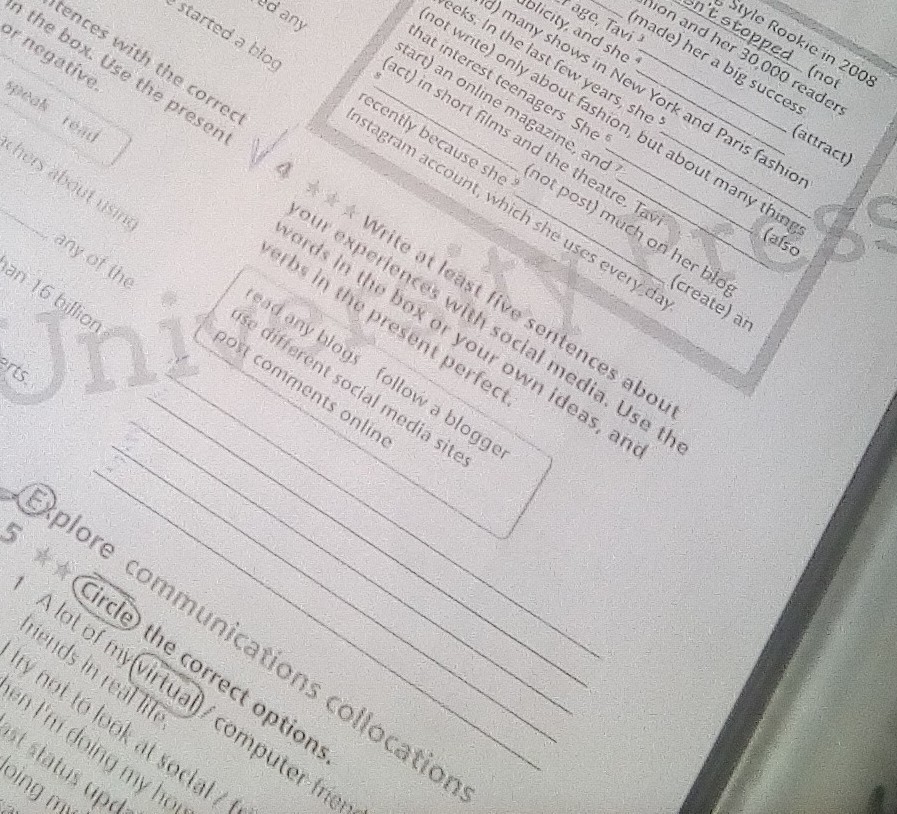 ed any
e started a blog
tences with the correct
in the box. Use the present
or negative.
speak read
achers about using
any of the
han 16 billion
erts.
Style Rookie in 2008
n't stopped (not
nion and her 30,000 readers
(made) her a big success
r age, Tavi 3
(attract)
ublicity, and she 4
many shows in New York and Paris fashion
eeks. In the last few years, she 5
(not write) only about fashion, but about many things
that interest teenagers. She 6 (also
start) an online magazine, and 7
(act) in short films and the theatre. Tavi
8 (not post) much on her blog
recently because she 9 (create) an
Instagram account, which she uses every day.
4 ★★★ Write at least five sentences about
your experiences with social media. Use the
words in the box or your own ideas, and
verbs in the present perfect.
read any blogs follow a blogger
use different social media sites
post comments online
University Press
Explore communications collocations
5 ★★ Circle the correct options.
1 A lot of my virtual / computer friend
friends in real life.
I try not to look at social /
hen I'm doing my
ast status upda
doing my